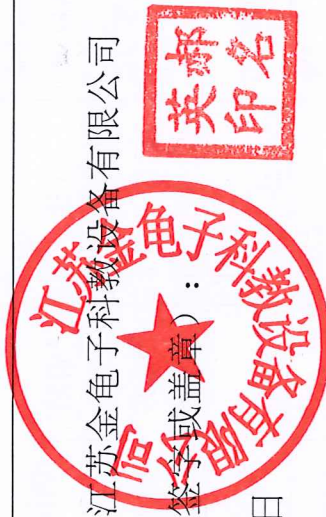 江苏金龟子科教设备有限公司
签字或盖章）：
日
江苏金龟子科教设备有限公司
名英印